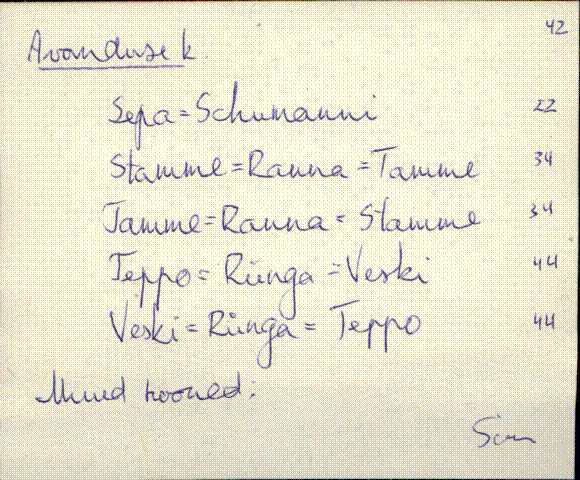 42
Avanduse k.
Sepa = Schumanni 22
Stamme = Ranna = Tamme 34
Tamme = Ranna = Stamme 34
Teppo = Rünga = Veski 44
Veski = Rünga = Teppo 44
Muud hooned: